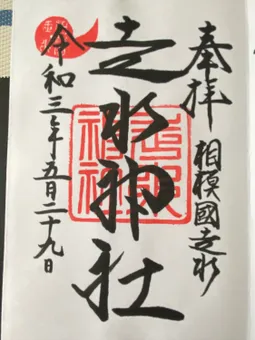 奉拝
相模國走水
走水神社
走水神社
令和三年五月二十九日